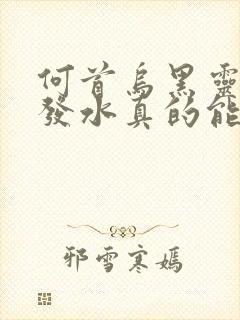 何首烏黑靈
發水真的能
邪雪寒嫣